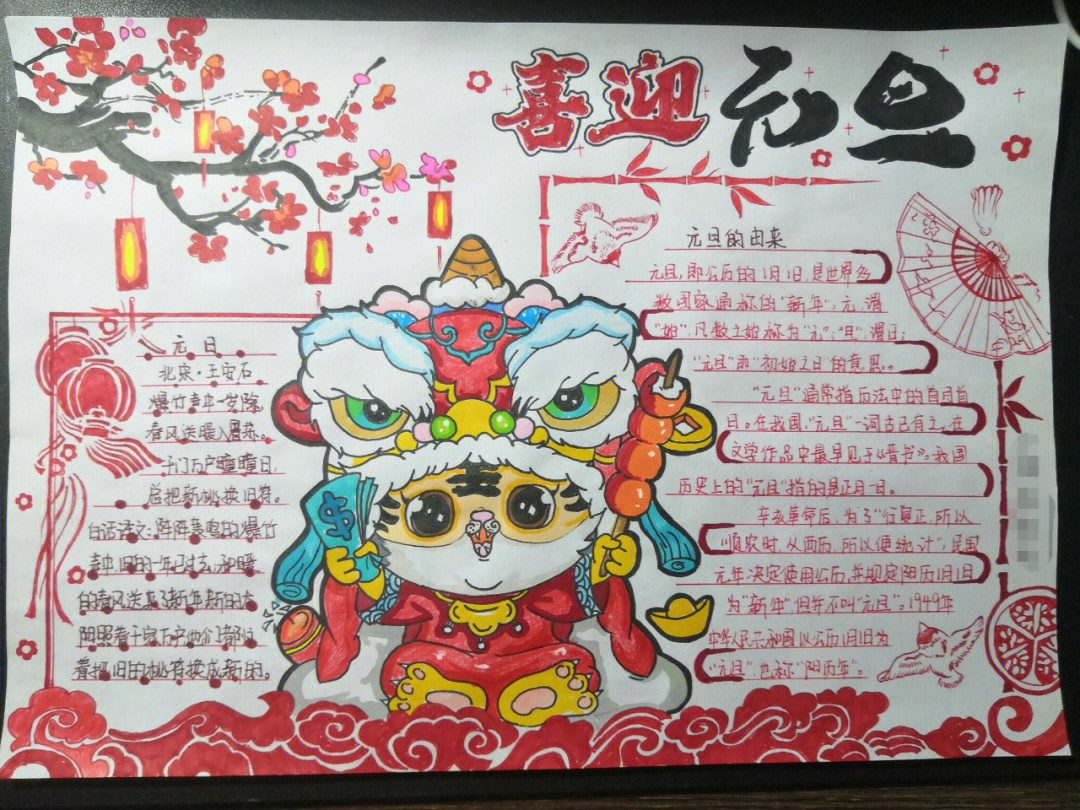 喜迎元旦
元旦
北宋·王安石
爆竹声中一岁除，
春风送暖入屠苏。
千门万户曈曈日，
总把新桃换旧符。
白话译文：阵阵轰鸣的爆竹
声中，旧的一年已过去；和暖
的春风送来了新年，新的太
阳照着千家万户，他们都忙
着把旧的桃符换成新的。
元旦的由来
元旦，即公历的1月1日，是世界多
数国家通称的“新年”，元，谓
“始”，凡数之始称为“元”；“旦”，谓日；
“元旦”即“初始之日”的意思。
“元旦”通常指历法中的首月首
日。在我国，“元旦”一词古已有之，在
文学作品中最早见于《晋书》。我国
历史上的“元旦”指的是正月一日。
辛亥革命后，为了“行夏正，所以
顺农时，从西历，所以便统计”，民国
元年决定使用公历，并规定阳历1月1日
为“新年”，但并不叫“元旦”。1949年
中华人民共和国以公历1月1日为
“元旦”，也称“阳历年”。
$